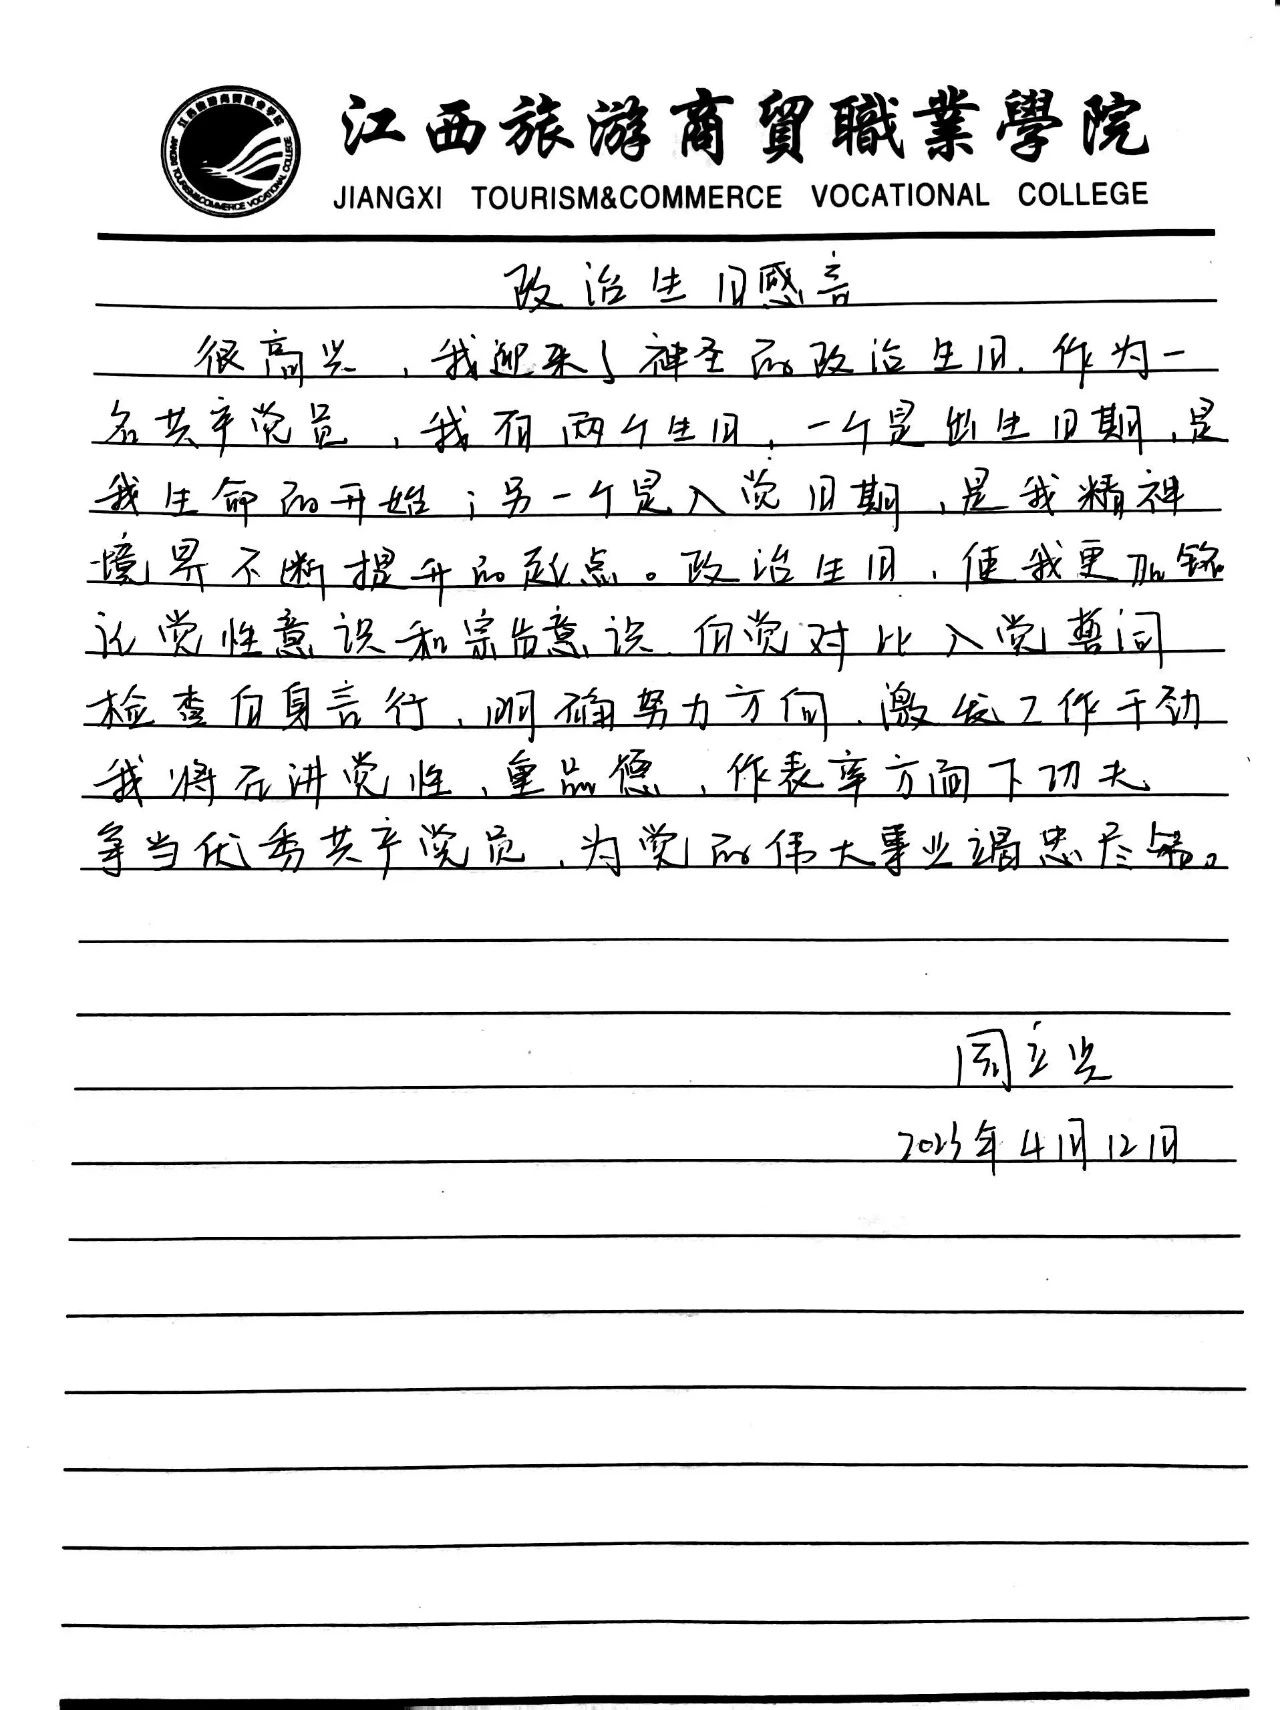 江西旅游商貿職業學院
JIANGXI TOURISM&COMMERCE VOCATIONAL COLLEGE
政治生日感言
很高兴，我迎来了神圣的政治生日．作为一
名共产党员，我有两个生日，一个是出生日期，是
我生命的开始；另一个是入党日期，是我精神
境界不断提升的起点。政治生日，使我更加铭
记党性意识和宗旨意识．自觉对比入党誓词
检查自身言行，明确努力方向，激发工作干劲
我将在讲党性，重品德，作表率方面下功夫
争当优秀共产党员，为党的伟大事业竭忠尽
周立光
2023年4月12日